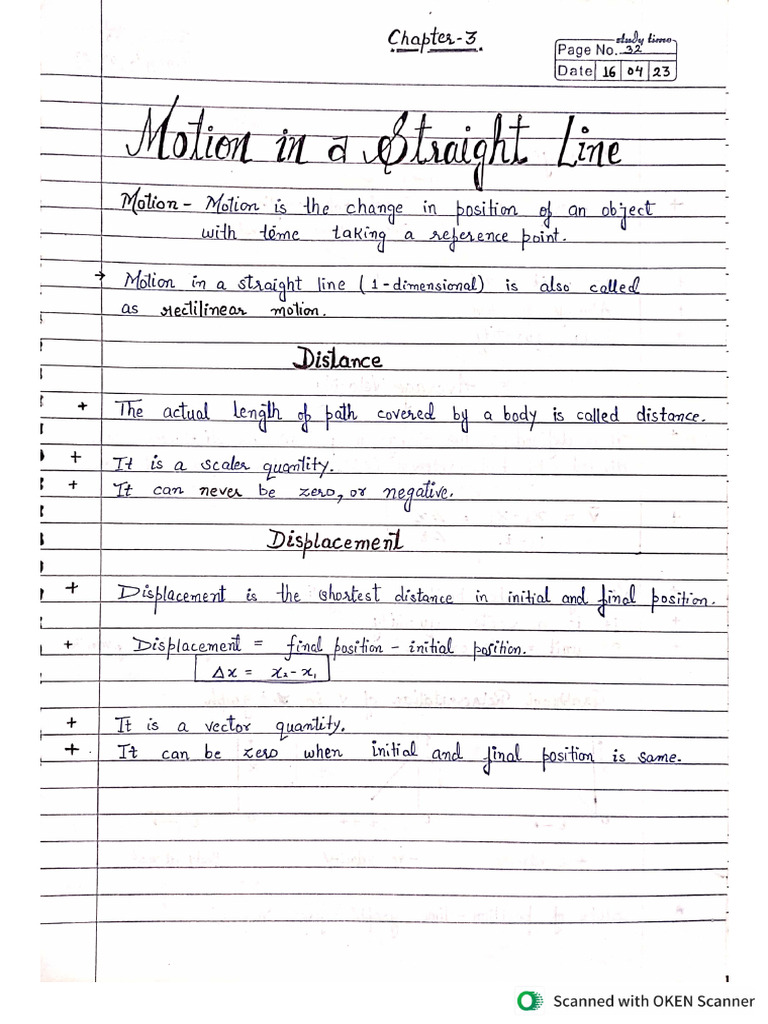 Chapter-3
study time
Page No. 32
Date 16 04 23
Motion in a Straight Line
Motion - Motion is the change in position of an object
with time taking a reference point.
→ Motion in a straight line (1-dimensional) is also called
as rectilinear motion.
Distance
+ The actual length of path covered by a body is called distance.
+ It is a scaler quantity.
+ It can never be zero, or negative.
Displacement
+ Displacement is the shortest distance in initial and final position.
+ Displacement = final position - initial position.
Δx = x₂ - x₁
+ It is a vector quantity.
+ It can be zero when initial and final position is same.
Scanned with OKEN Scanner